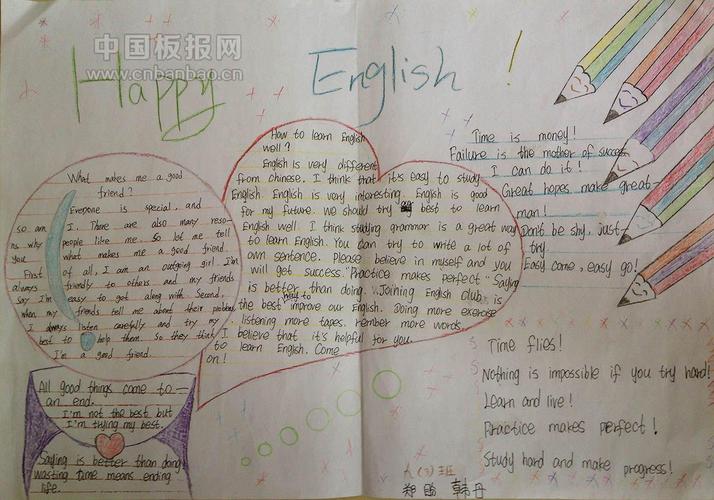 中国板报网
www.cnbanbao.cn
Happy English !
How to learn English
well?
English is very different
from Chinese. I think that it's easy to study
English. English is very interesting. English is good
for my future. We should try best to learn
English well. I think studying grammar is a great way
to learn English. You can try to write a lot of
own sentence. Please believe in myself and you
will get success. "Practice makes perfect" "Saying
is better than doing." Joining English club is
the best way to improve our English. Doing more exercise
listening more tapes. rember more words.
I believe that it's helpful for you.
to learn English. Come
on!
What makes me a good
friend?
Everyone is special, and
so am I. There are also many reso-
ns why people like me. So let me tell
you what makes me a good friend.
First of all, I am an outgoing girl. I'm
always friendly to others and my friends
say I'm easy to get along with. Second,
when my friends tell me about their problem
I always listen carefully and try my
best to help them. So they think
I'm a good friend.
All good things come to
an end.
I'm not the best but
I'm trying my best.
Saying is better than doing
wasting time means ending
life.
Time is money!
Failure is the mother of success
I can do it!
Great hopes make great-
man!
Dont be shy, just
try.
Easy come, easy go!
Time flies!
Nothing is impossible if you try hard!
Learn and live!
Practice makes perfect!
Study hard and make progress!
班
韩丹